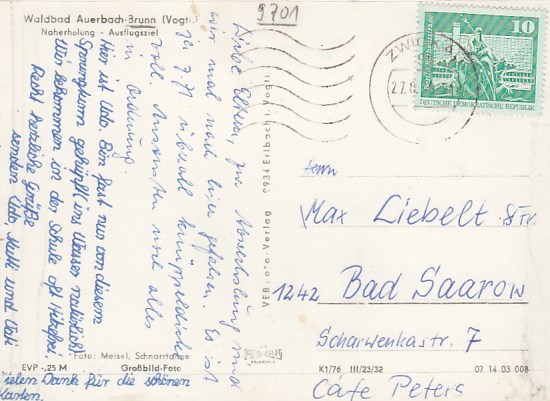 Waldbad Auerbach-Brunn (Vogtl.)
Naherholung - Ausflugsziel
9701
Liebe Eltern, zur Abwechslung sind
wir mal nach hier gefahren. Es ist
überall
voll. Ansonsten noch alles
in Ordnung.
Hier ist Udo. Bin fast nur von diesem
Sprungturm gehüpft (ins Wasser natürlich).
Wir bekommen in der Schule oft Hitzefrei.
Recht herzliche Grüße
senden Udo, Mutti und Vati
Vielen Dank für die schönen
Karten.
Foto: Meisel, Schnarrtanne
EVP -,25 M Großbild-Foto
VEB
o-Verlag
9934 Erlbach i. Vogtl.
K1/76 III/23/32 07 14 03 008
10
DEUTSCHE DEMOKRATISCHE REPUBLIK
Herrn
Max Liebelt
1242 Bad Saarow
Scharwenkastr. 7
Café Peters